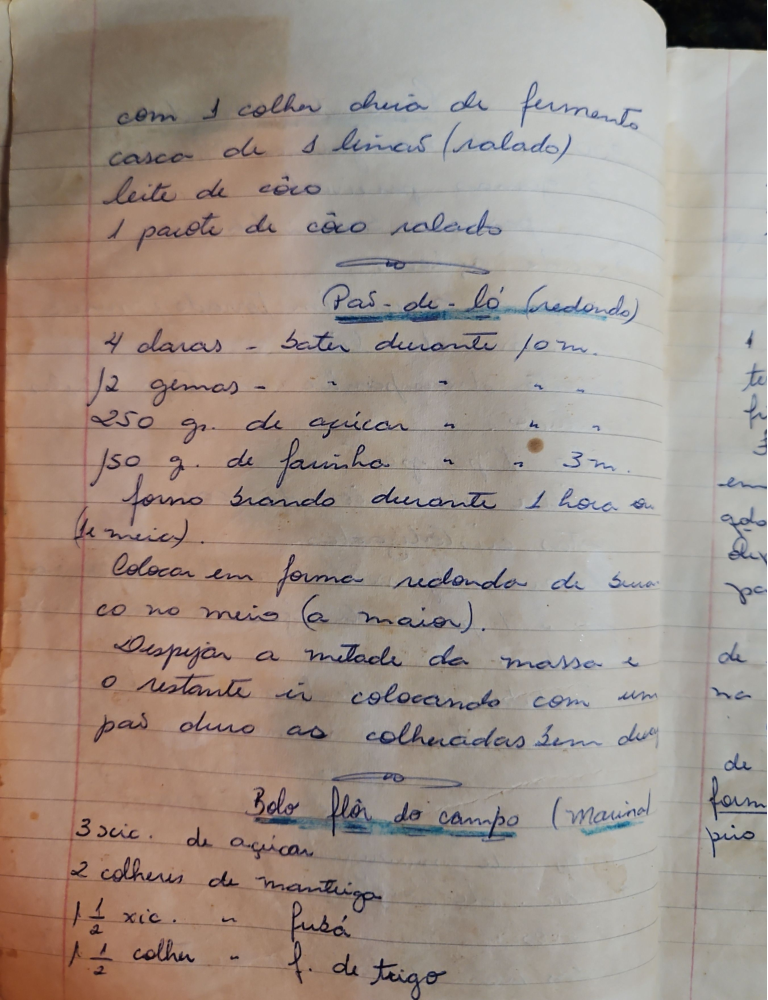 com 1 colher cheia de fermento
casca de 1 limão (ralado)
leite de côco
1 pacote de côco ralado
Pão-de-ló (redondo)
4 claras - bater durante 10 m.
12 gemas - " " " "
250 gr. de açúcar " " "
150 g. de farinha " " 3 m.
forno brando durante 1 hora ou
(1 e meia).
Colocar em forma redonda de bura
co no meio (a maior).
Despejar a metade da massa e
o restante ir colocando com um
pão duro as colheradas bem
Bolo flôr do campo (Marina)
3 xic. de açúcar
2 colheres de manteiga
1 1/2 xic. " fubá
1 1/2 colher " f. de trigo
1
te
em
pa
de
na
de
form